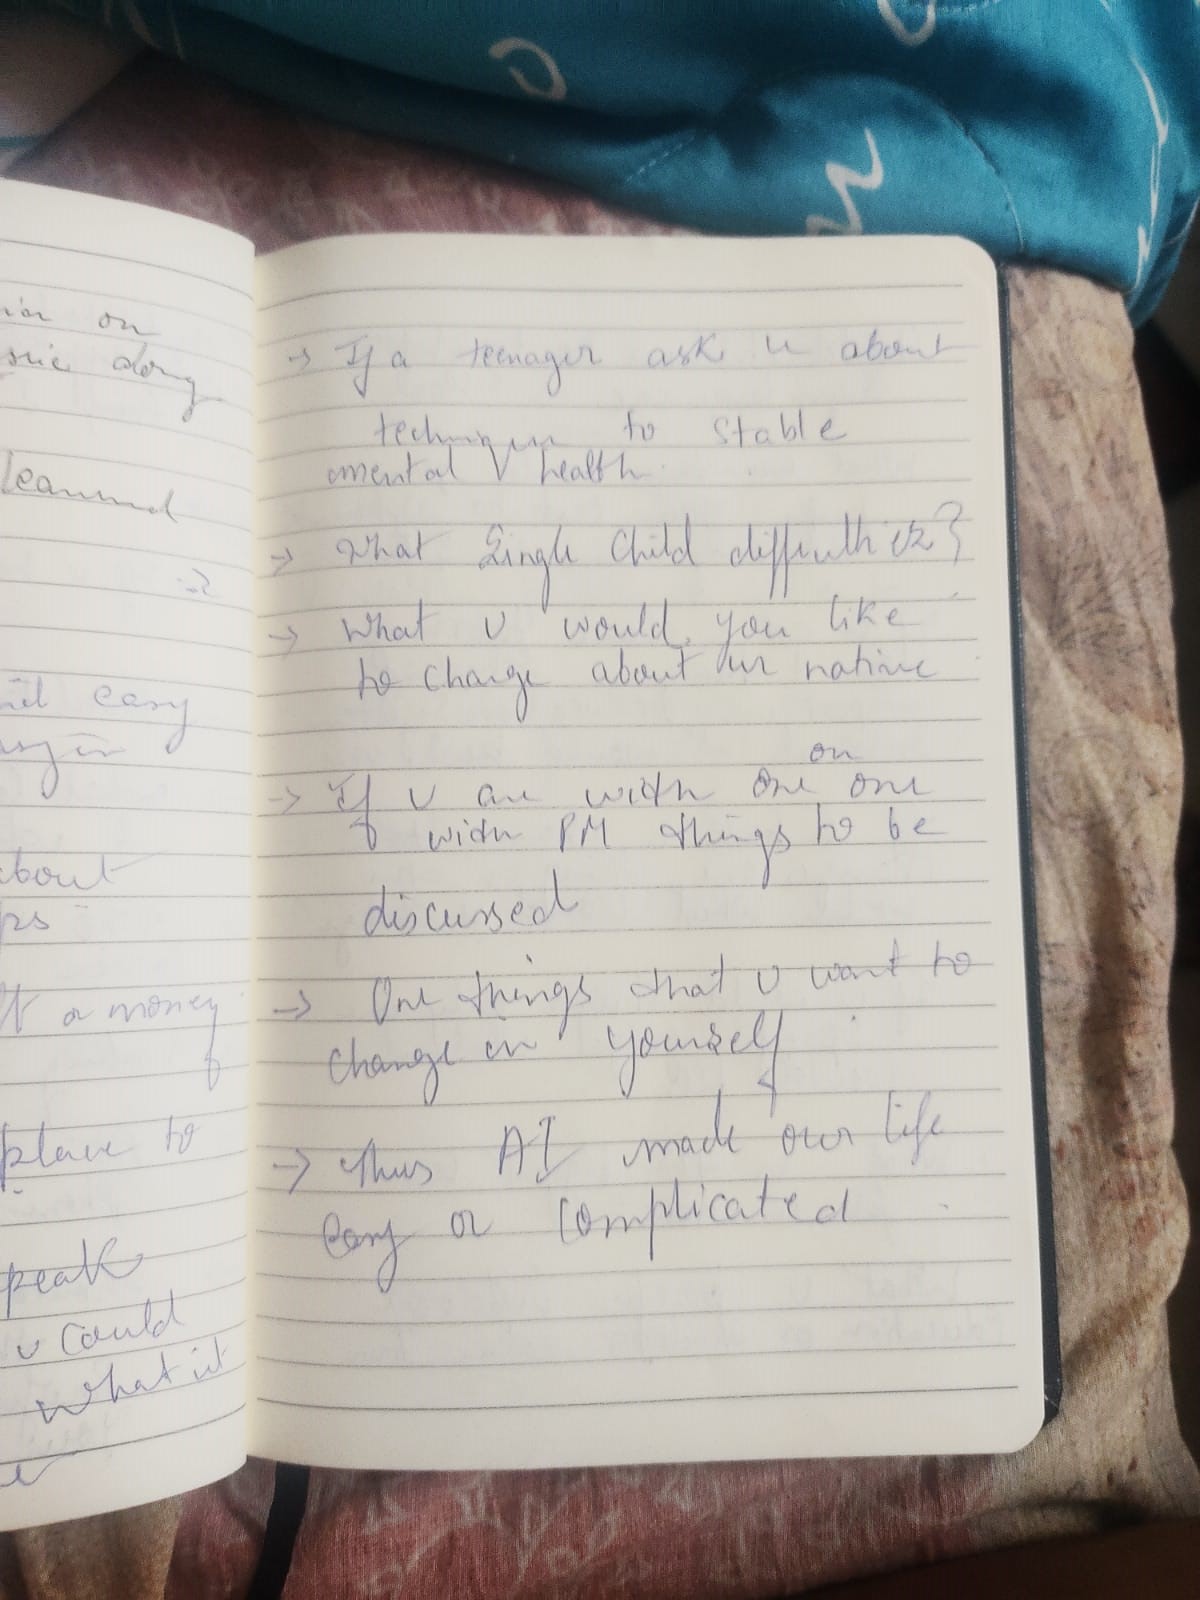 on
along
learned
easy
about
a money
place to
speak
u could
what it
→ If a teenager ask u about
techniques to stable
mental health.
→ What Single Child difficulties?
→ What U would, you like
to change about ur native
→ If U are with one on one
with PM things to be
discussed
→ One things that U want to
change in yourself
→ Thus AI made our life
easy or complicated.